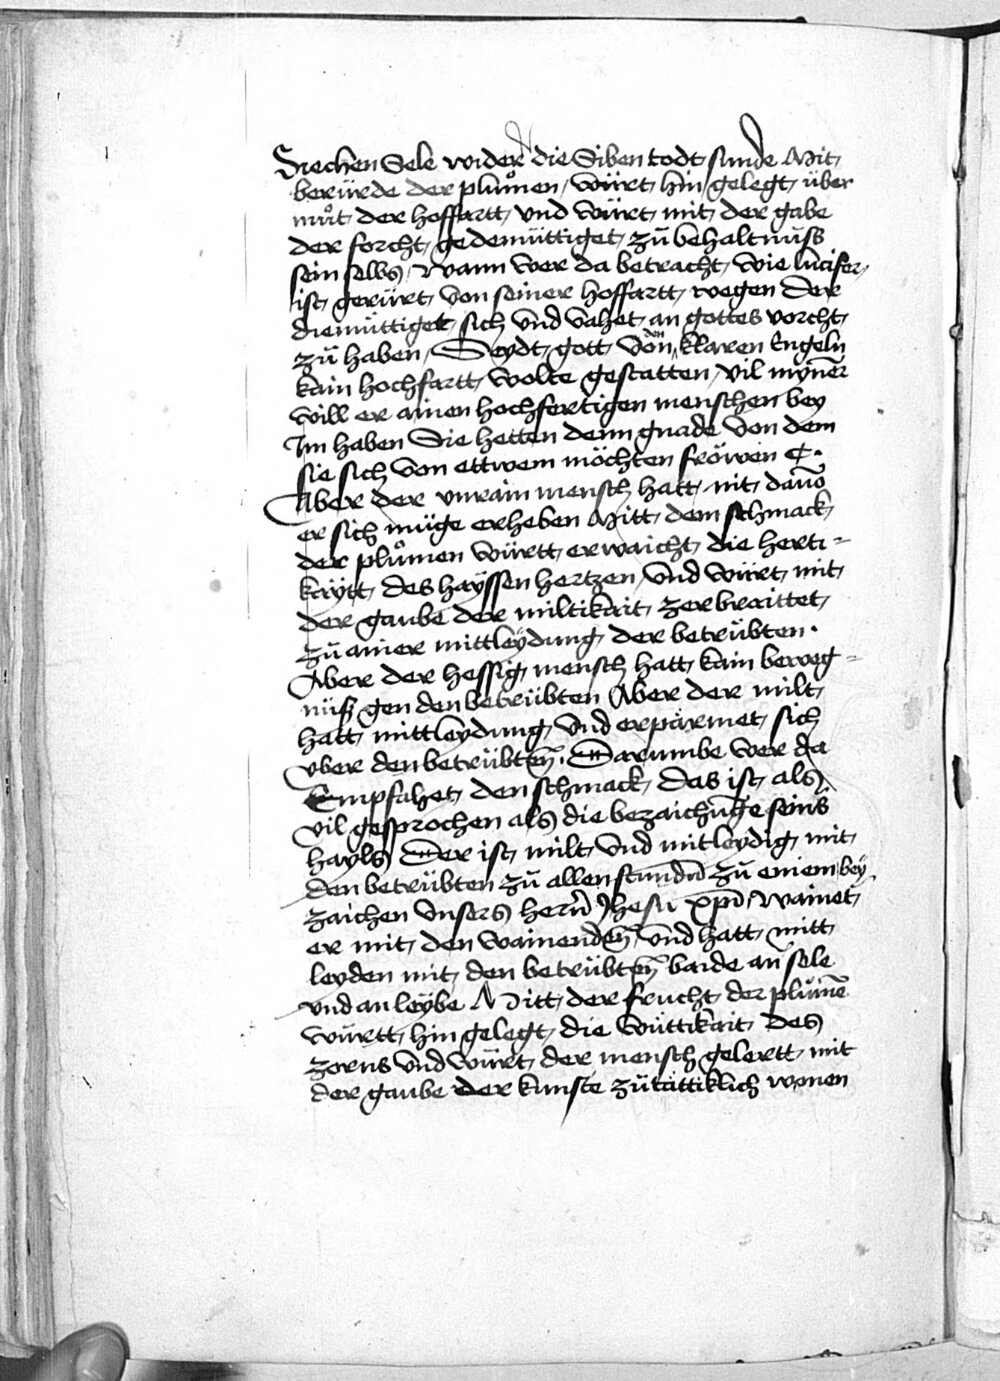 Siechen Sele wider die Siben todt sunde Mit
berürde der plůmen / würt hin gelegt über
můt der hoffartt und würt mit der gabe
der forcht gedemüttiget zů behaltnuss
sein selbs / Wann wer da betracht wie lucifer
ist gerürt von seiner hoffartt wegen der
diemüttiget sich und vahet an gottes vorcht
zů haben / Seydt gott von den klaren Engeln
kain hochfartt wolte gestatten / vil mynner̄
will er ainen hochfertigen menschen bey
Im haben Sie hetten denn gnade von dem
sie sich von ettwem möchten fröwen ⁊c.
Aber der vnrain mensch hatt nit dauō
er sich müge erheben Mitt dem schmack
der plůmen württ erwaicht die herti=
kaytt des hayssen hertzen / vnd würt mit
der gaube der miltikait zerbraittet
zů ainer mittleydung der betrübten.
Aber der hessig mensch hatt kain beweg=
nüß gen den betrübten Aber der milt
hatt mittleydung und erparmet sich
vber den betrübtē. Darumbe wer da
Empfahet den schmack das ist als
vil gesprochen als die bezaichnūge seins
hayls Der ist milt und mitleydig mit
den betrübten zů allen stundn̄ zů einem bey
zaichen vnsers hern̄ Jhesu xp̄ī / Wainet
er mit den wainendē und hatt mitt
leyden mit den betrübtē baide an sele
vnd an leybe Mitt der frucht der plůmē
württ hin gelegt die wüttikait des
zorns und würt der mensch gelertt mit
der gaube der kunste zůtättiklich wonen